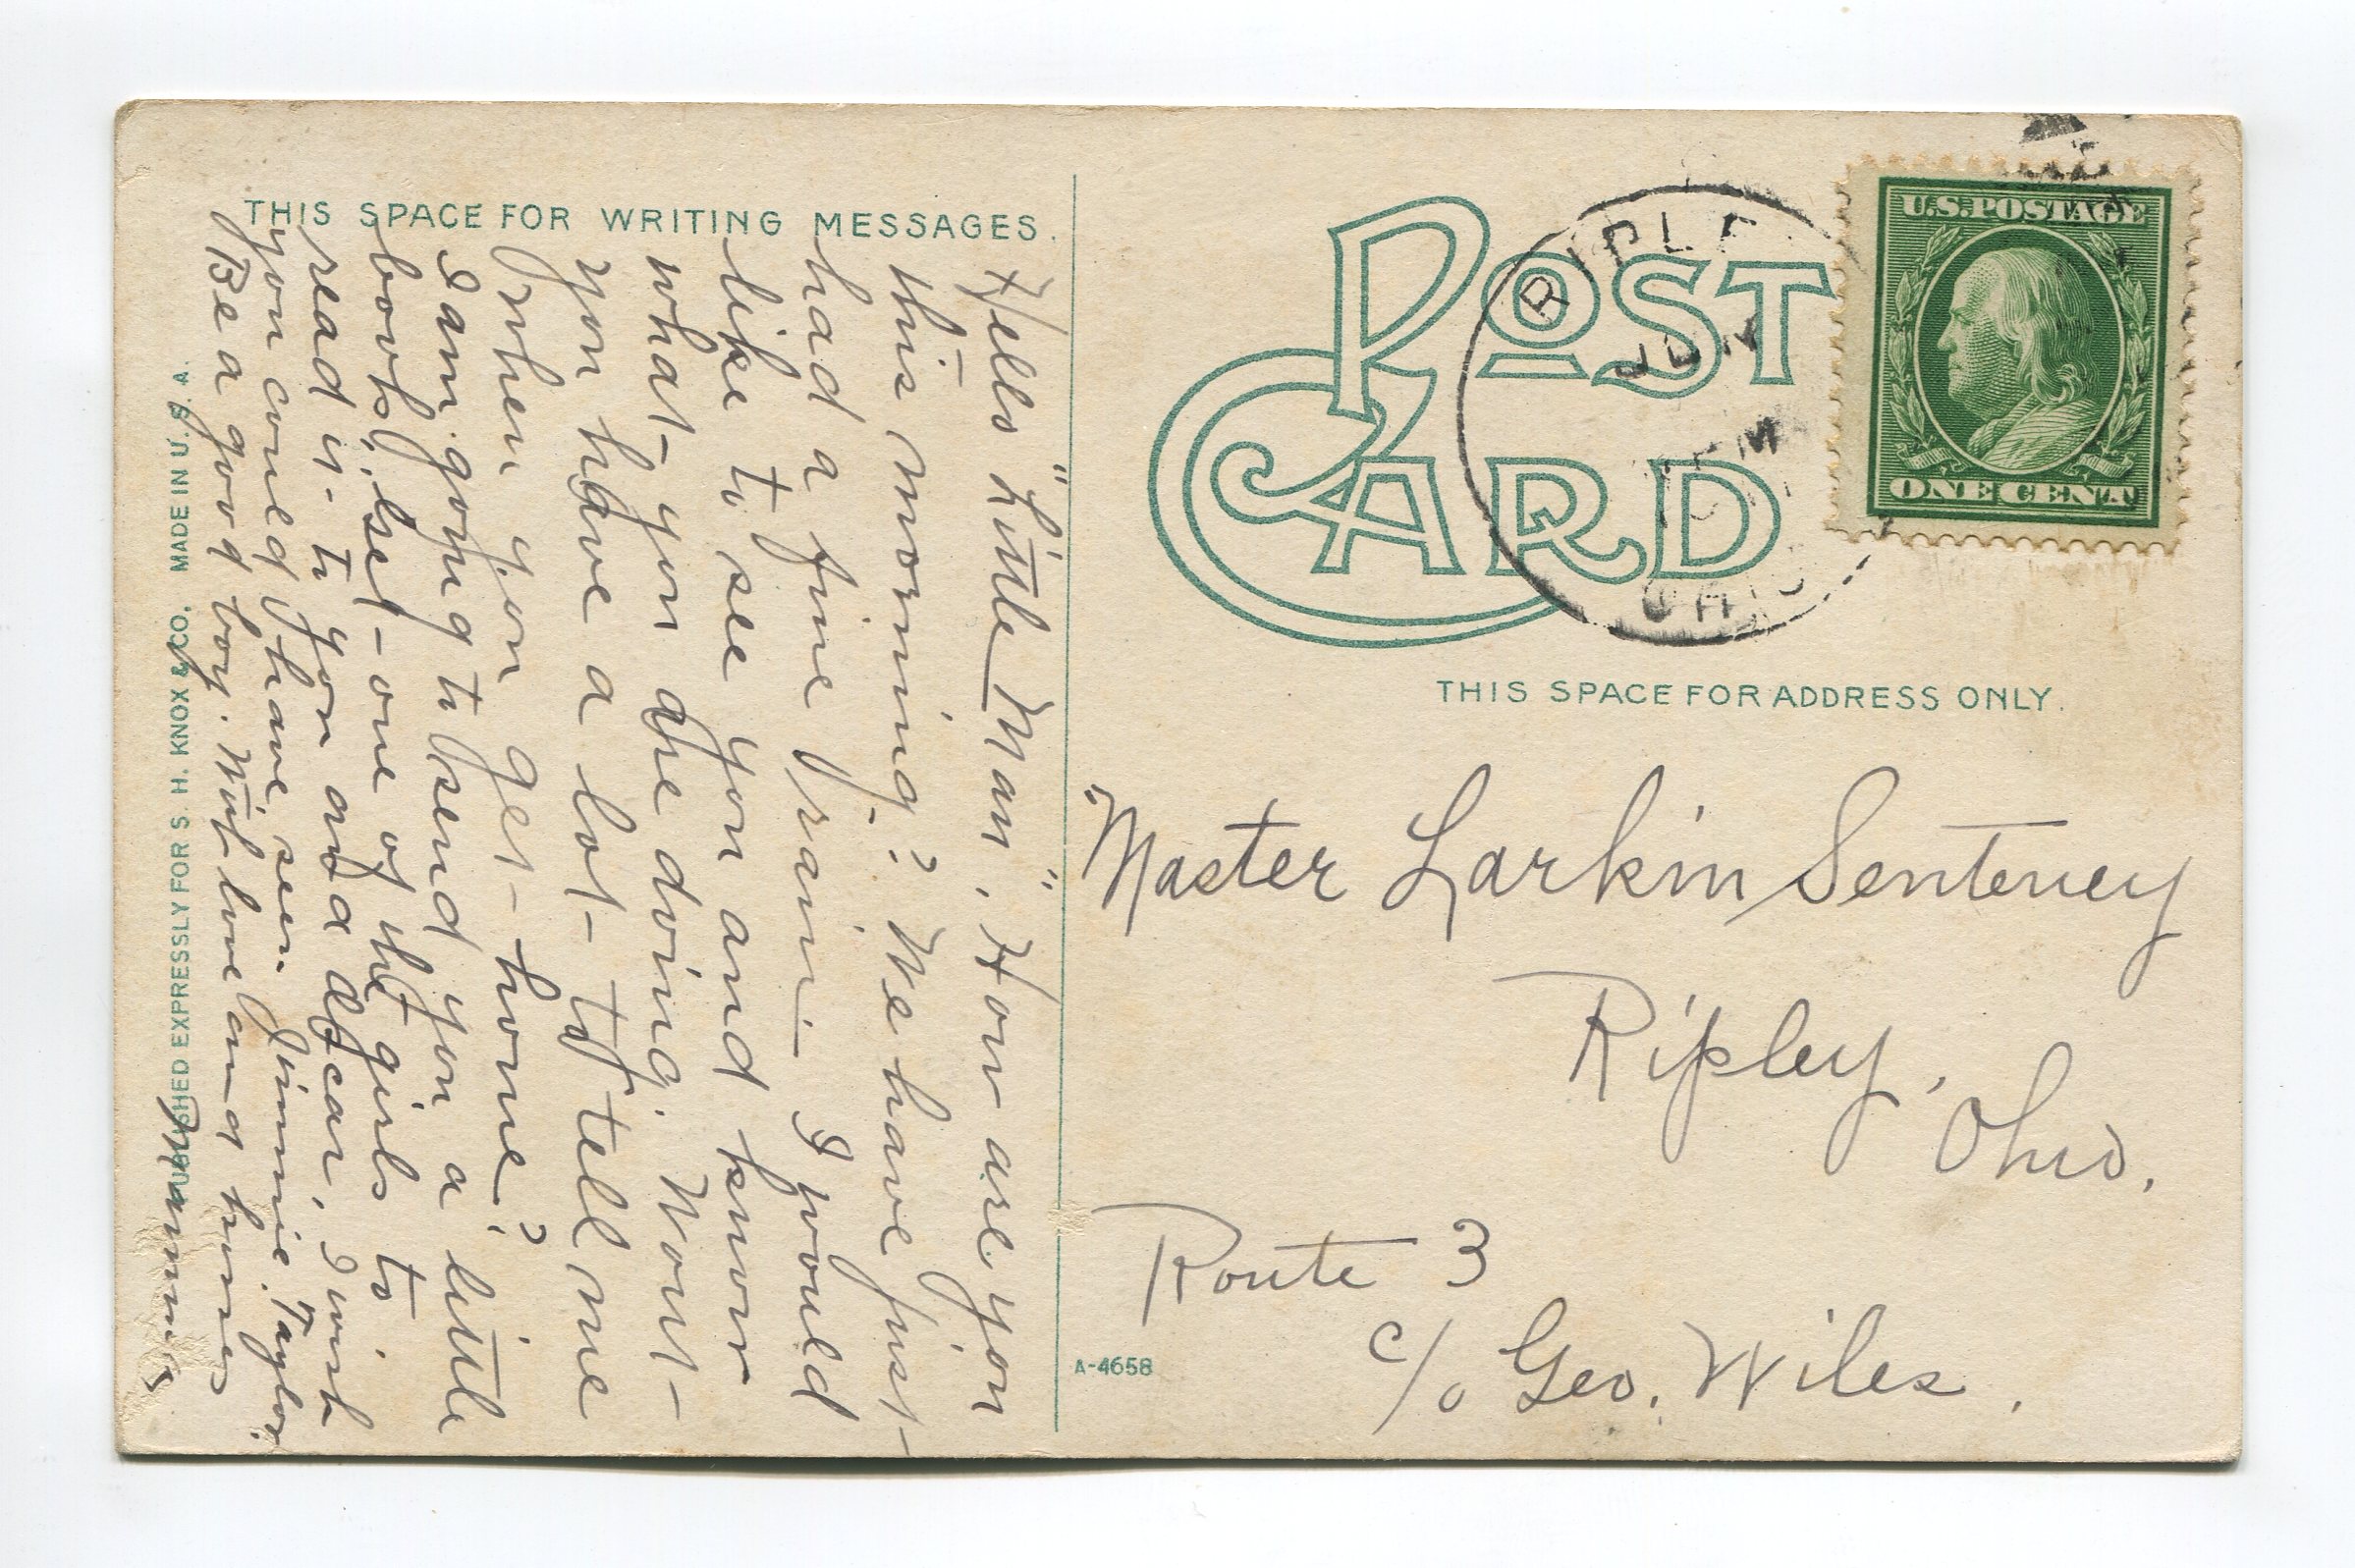 THIS SPACE FOR WRITING MESSAGES.
Hello "Little Man", How are you
this morning? We have just
had a fine rain. I would
like to see you and know
what you are doing. Wont
you have a lot to tell me
when you get home?
I am going to send you a little
book; let one of the girls to
read it to you and Oscar, I wish
you could have seen Jimmie Taylor.
Be a good boy. With love and
PUBLISHED EXPRESSLY FOR S. H. KNOX & CO. MADE IN U. S. A.
POST CARD
RIPLEY
JUN
OHIO
U.S. POSTAGE
ONE CENT
THIS SPACE FOR ADDRESS ONLY.
"Master Larkin Senteney
Ripley,
Ohio.
Route 3
c/o Geo. Wiles.
A-4658